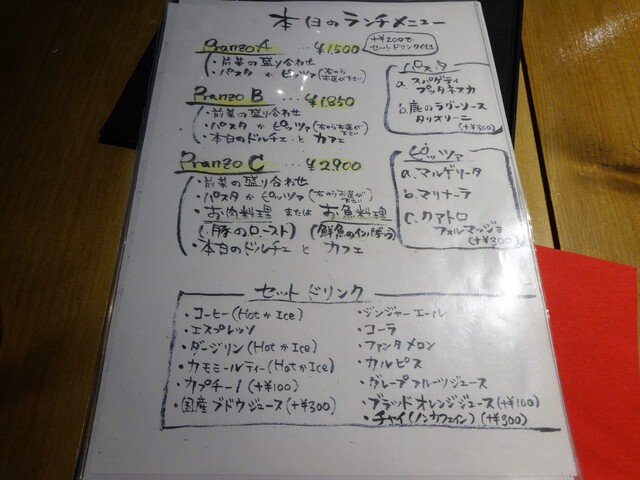 本日のランチメニュー
Pranzo A … ¥1,500
+¥200で
セットドリンク付
・前菜の盛り合わせ
・パスタ か ピッツァ(右からお選び下さい)
Pranzo B … ¥1,850
・前菜の盛り合わせ
・パスタ か ピッツァ(右からお選び下さい)
・本日のドルチェ と カフェ
Pranzo C … ¥2,900
・前菜の盛り合わせ
・パスタ か ピッツァ(右からお選び下さい)
・お肉料理 または お魚料理
(豚のロースト) (鮮魚のインパデッラ)
・本日のドルチェ と カフェ
パスタ
a. スパゲティ
プッタネスカ
b. 鹿のラグーソース
タリオリーニ
(+¥300)
ピッツァ
a. マルゲリータ
b. マリナーラ
c. クアトロ
フォルマッジョ
(+¥300)
セットドリンク
・コーヒー(Hot か Ice)
・エスプレッソ
・ダージリン(Hot か Ice)
・カモミールティー(Hot か Ice)
・カプチーノ(+¥100)
・国産ブドウジュース(+¥300)
・ジンジャーエール
・コーラ
・ファンタメロン
・カルピス
・グレープフルーツジュース
・ブラッドオレンジジュース(+¥100)
・チャイ(ノンカフェイン)(+¥300)